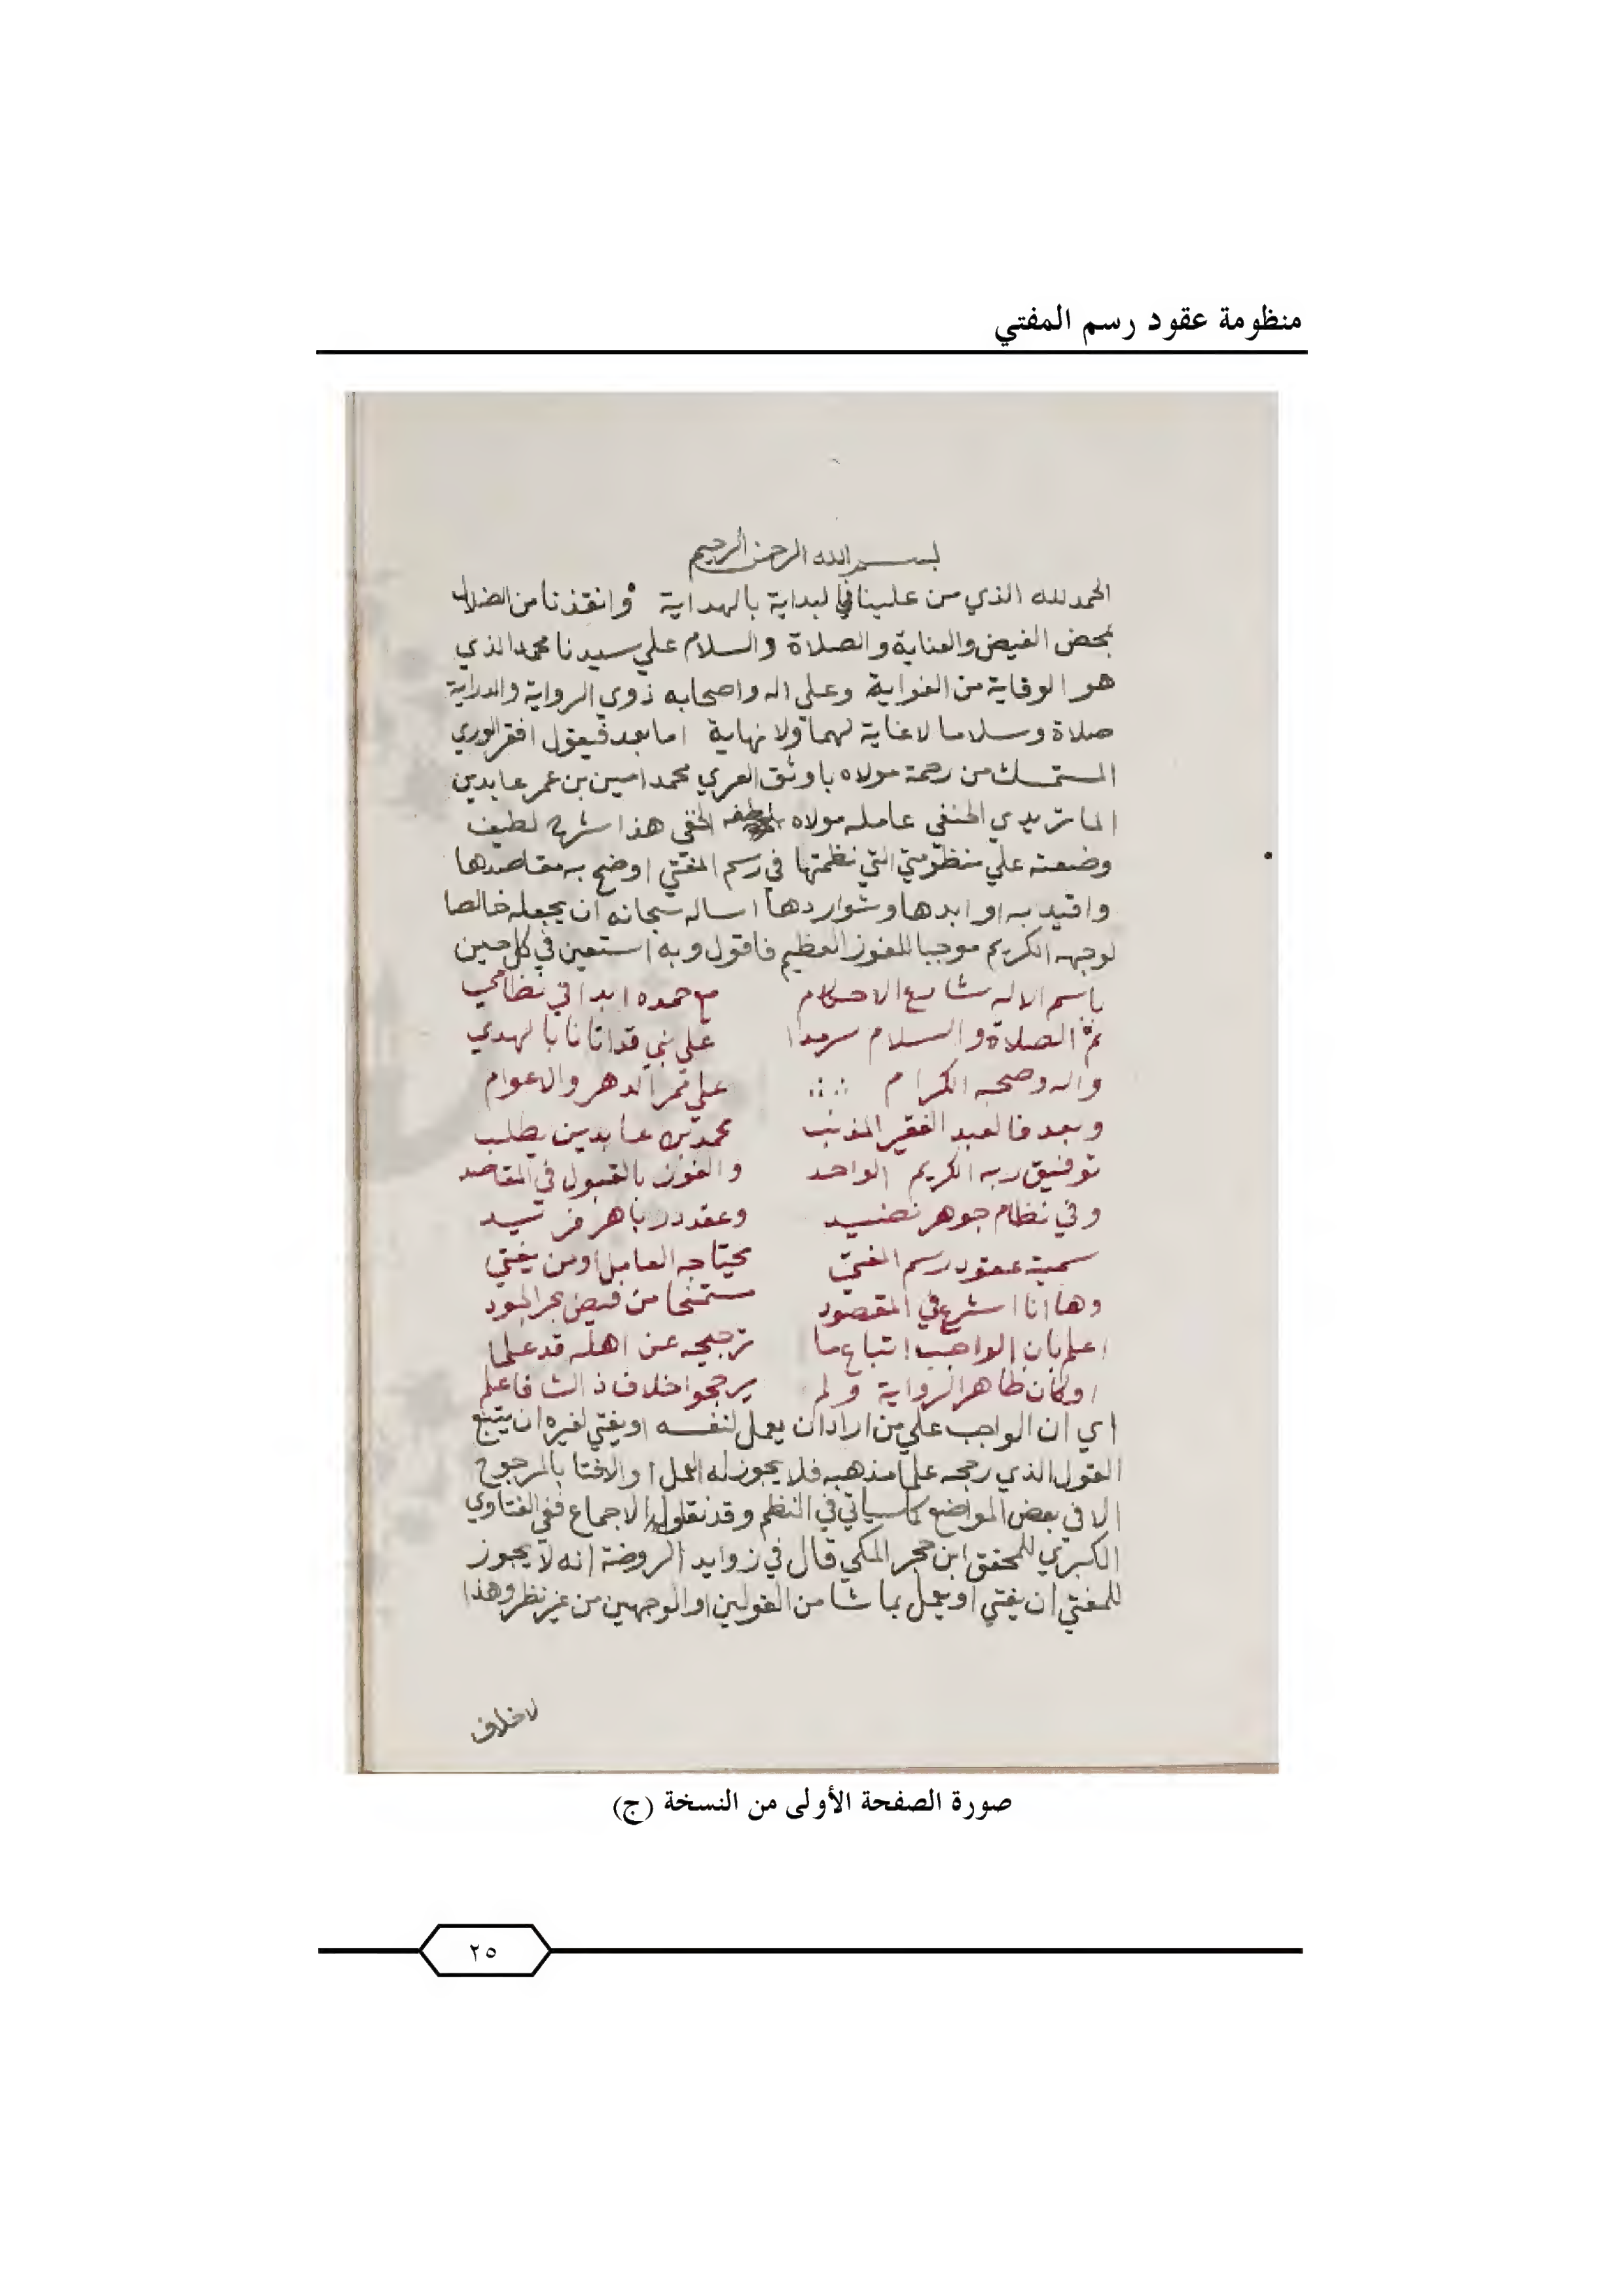 منظومة عقود رسم المفتي
بسم الله الرحمن الرحيم
الحمد لله الذي من علينا في البداية بالهداية وانقذنا من الضلال
بمحض الفيض والعناية والصلاة والسلام علي سيدنا محمد الذي
هو الوقاية من الغواية وعلي اله واصحابه ذوي الرواية والدراية
صلاة وسلاما لا غاية لهما ولا نهاية اما بعد فيقول افقر الوري
المستمسك من رحمة مولاه باوثق العري محمد امين بن عمر عابدين
الماتريدي الحنفي عامله مولاه بلطفه الخفي هذا شرح لطيف
وضعته علي منظومتي التي نظمتها في رسم المفتي اوضح به مقاصدها
واقيد به اوابدها وشواردها اساله سبحانه ان يجعله خالصا
لوجهه الكريم موجبا للفوز العظيم فاقول وبه استعين في كل حين
باسم الاله شارع الاحكام مع حمده ابدا في نظامي
ثم الصلاة والسلام سرمدا علي نبي قد اتانا بالهدي
واله وصحبه الكرام علي ممر الدهر والاعوام
وبعد فالعبد الفقير المذنب محمد بن عابدين يطلب
توفيق ربه الكريم الواحد والفوز بالقبول في المقاصد
وفي نظام جوهر نضيد وعقد در باهر فريد
سميته عقود رسم المفتي يحتاجه العامل او من يفتي
وها انا اشرع في المقصود مستمنحا من فيض بحر الجود
اعلم بان الواجب اتباع ما ترجيحه عن اهله قد علما
او كان ظاهر الرواية ولم يرجحوا خلاف ذالك فاعلم
اي ان الواجب علي من اراد ان يعمل لنفسه او يفتي لغيره ان يتبع
القول الذي رجحه علما مذهبه فلا يجوز له العمل او الافتا بالمرجوح
الا في بعض المواضع كما سياتي في النظم وقد نقلوا الاجماع ففي الفتاوي
الكبري للمحقق ابن حجر المكي قال في زوايد الروضة انه لا يجوز
للمفتي ان يفتي او يعمل بما شا من القولين او الوجهين من غير نظر وهذا
لا خلاف
صورة الصفحة الأولى من النسخة (ج)
٢٥